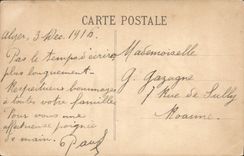 CARTE POSTALE
Alger, 3 Déc. 1910.
Pas le temps d'écrire
plus longuement.
Respectueux hommages
à toute votre famille
Pour vous une
affectueuse poignée
de main.
Paul
Mademoiselle
G. Gazagne
7 Rue de Sully
Roanne.